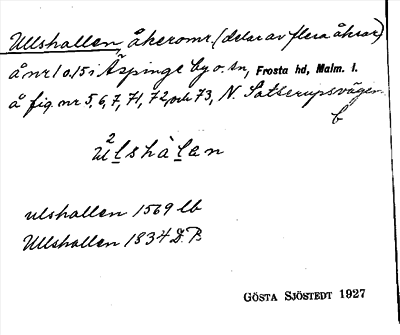 Ullshallen, åkeromr. (delar av flera åkrar)
å nr 1 o. 15 i Äspinge by o. sn, Frosta hd, Malm. l.
å fig. nr 5, 6, 7, 71, 72, och 73, N. Satserupsvägen.
b
2
ulshàlan
ulshallen 1569 lb
Ullshallen 1834 D. B
GÖSTA SJÖSTEDT 1927